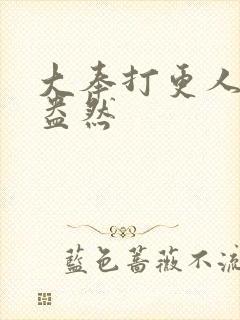 大奉打更人
盎然
藍色薔薇不流